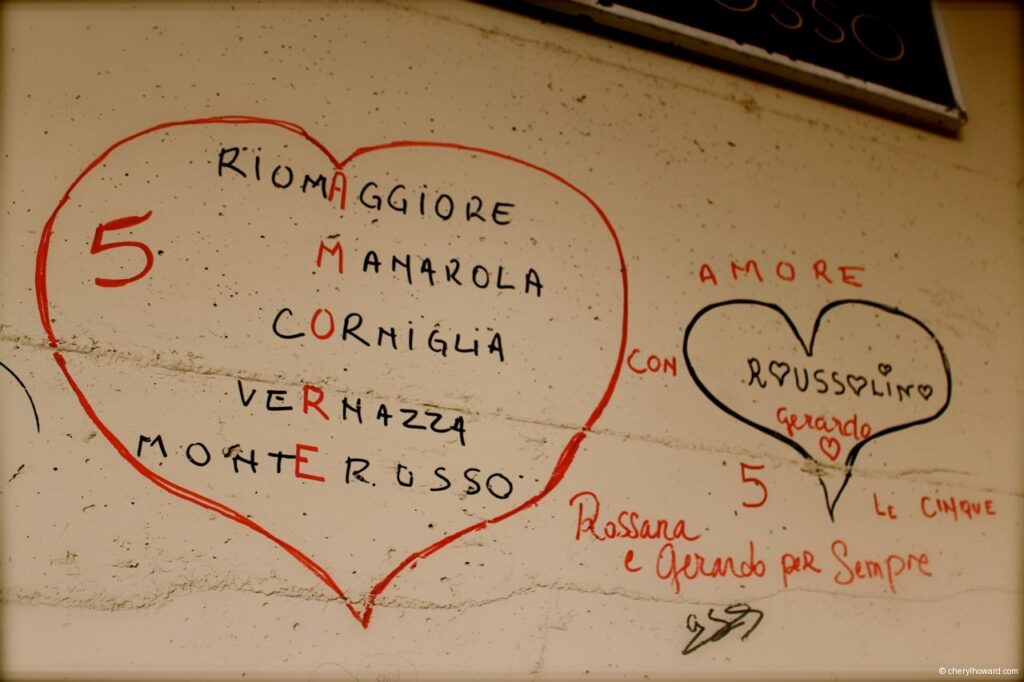 OSSO
5
RIOMAGGIORE
MANAROLA
CORNIGLIA
VERNAZZA
MONTEROSSO
CON
AMORE
ROUSSOLINO
Gerardo
5
LE CINQUE
Rossana
e Gerardo per Sempre
© cherylhoward.com